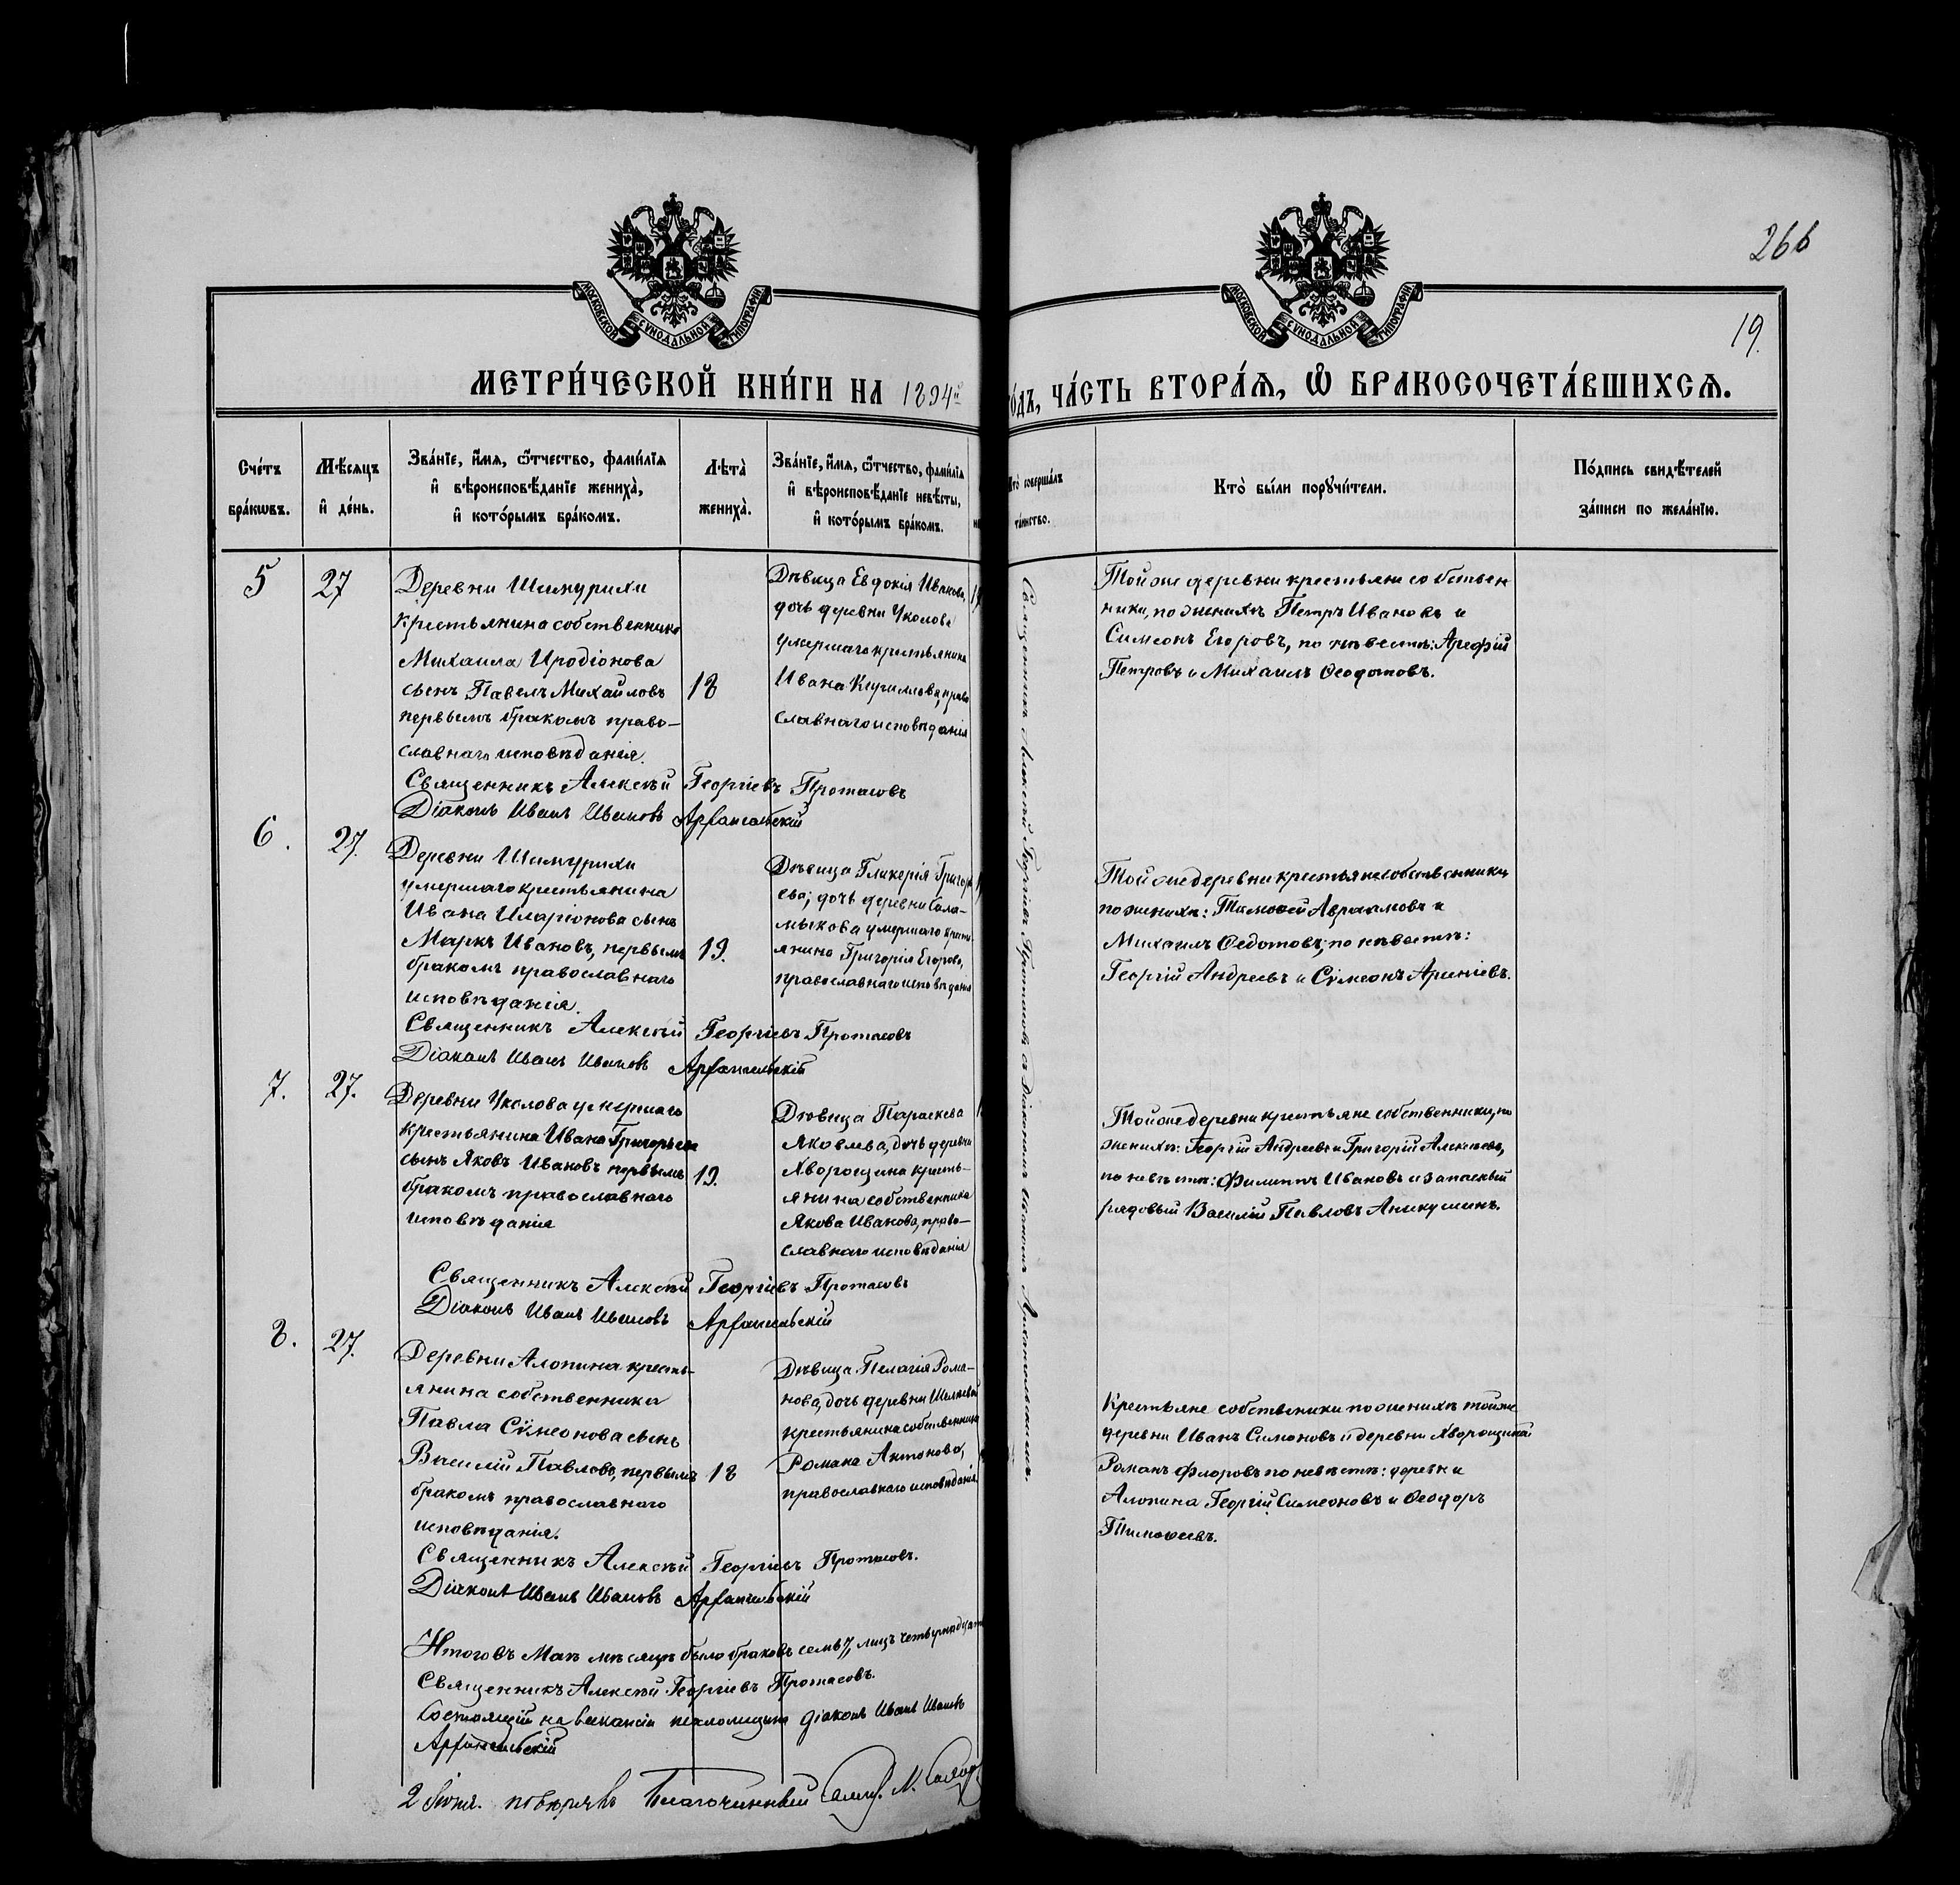 266
19.
МОСКОВСКОЙ СѴНОДАЛЬНОЙ ТИПОГРАФІИ
МОСКОВСКОЙ СѴНОДАЛЬНОЙ ТИПОГРАФІИ
МЕТРИ́ЧЕСКОЙ КНИ́ГИ НА 1894й го́дъ, ча́сть втора́ѧ, ѽ бракосочета́вшихсѧ.
Сче́тъ бра́кѡвъ.
Мѣ́сѧцъ и҆ де́нь.
Зва́нїе, и҆́мѧ, ѻ҆́тчество, фами́лїѧ
и҆ вѣроисповѣ́данїе жениха̀,
и҆ кото́рымъ бра́комъ.
Лѣта̀ жениха̀.
Зва́нїе, и҆́мѧ, ѻ҆́тчество, фами́лїѧ
и҆ вѣроисповѣ́данїе невѣ́сты,
и҆ кото́рымъ бра́комъ.
Кто̀ соверша́лъ
та́инство.
Кто̀ бы́ли порꙋчи́тели.
По́дпись свидѣ́телей
за́писи по жела́нїю.
5
27
Деревни Шимурихи
крестьянина собственника
Михаила Иродіонова
сынъ Павелъ Михайловъ
первымъ бракомъ право-
славнаго исповѣданія.
18
Дѣвица Евдокія Иванова,
дочь деревни Уколова
умершаго крестьянина
Ивана Кирилова, право
славнаго исповѣданія
Тойже деревни крестьяне собствен
ники, по женихѣ Петръ Ивановъ и
Симеонъ Егоровъ, по невѣстѣ: Арефій
Петровъ и Михаилъ Ѳеодотовъ.
Священникъ Алексѣй Георгіевъ Протасовъ
Діаконъ Иванъ Ивановъ Архангельскій
6.
27.
Деревни Шимурихи
умершаго крестьянина
Ивана Иларіонова сынъ
Маркъ Ивановъ, первымъ
бракомъ православнаго
исповѣданія.
19.
Дѣвица Гликерія Григорь
ева; дочь деревни Сала-
мыкова умершаго кресть
янина Григорія Егорова,
православнаго исповѣданія
Тойже деревни крестьяне собственники,
по женихѣ: Тимоѳей Авраамовъ и
Михаилъ Ѳедотовъ; по невѣстѣ:
Георгій Андреевъ и Сѵмеонъ Арсеніевъ.
Священникъ Алексѣй Георгіевъ Протасовъ
Діаконъ Иванъ Ивановъ Архангельскій
7.
27.
Деревни Уколова умершаго
крестьянина Ивана Григорьева
сынъ Яковъ Ивановъ первымъ
бракомъ православнаго
исповѣданія
19.
Дѣвица Параскева
Яковлева, дочь деревни
Хворощина кресть-
янина собственника
Якова Иванова, право-
славнаго исповѣданія
Тойже деревни крестьяне собственники, по
женихѣ: Георгій Андреевъ и Григорій Алексѣевъ,
по невѣстѣ: Филиппъ Ивановъ и запасный
рядовый Василій Павловъ Аникушинъ.
Священникъ Алексѣй Георгіевъ Протасовъ
Діаконъ Иванъ Ивановъ Архангельскій
8.
27.
Деревни Алопина кресть-
янина собственника
Павла Сѵмеонова сынъ
Василій Павловъ, первымъ
бракомъ православнаго
исповѣданія.
18
Дѣвица Пелагія Рома-
нова, дочь деревни
крестьянина собственника
Романа Антонова,
православнаго исповѣданія.
Крестьяне собственики по женихѣ тойже
деревни Иванъ Симоновъ и деревни Хворощина
Романъ Флоровъ по невѣстѣ: деревни
Алопина Георгій Симеоновъ и Ѳеодоръ
Тимоѳеевъ.
Священникъ Алексѣй Георгіевъ Протасовъ.
Діаконъ Иванъ Ивановъ Архангельскій
Священникъ Алексѣй Георгіевъ Протасовъ съ Діакономъ Иваномъ Архангельскимъ.
Итого въ Маѣ мѣсяцѣ было браковъ семь 7, лицъ четырнадцать
Священникъ Алексѣй Георгіевъ Протасовъ.
Состоящій на вакансіи псаломщика діаконъ Иванъ Ивановъ
Архангельскій
2 Іюня. повѣрялъ Благочинный